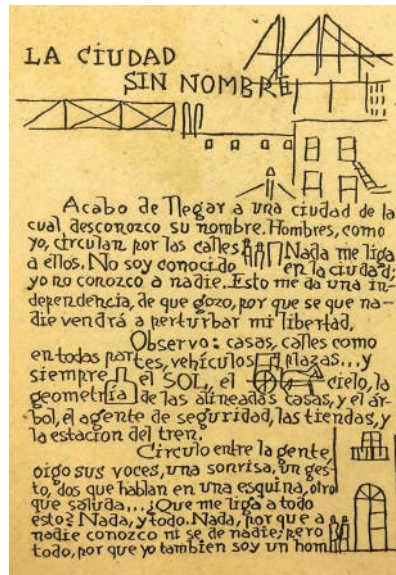 LA CIUDAD
SIN NOMBRE
Acabo de llegar a una ciudad de la
cual desconozco su nombre. Hombres, como
yo, circulan por las calles. Nada me liga
a ellos. No soy conocido en la ciudad;
yo no conozco a nadie. Esto me da una in-
dependencia, de que gozo, por que se que na-
die vendrá a perturbar mi libertad.
Observo: casas, calles como
en todas partes, vehículos plazas... y
siempre el SOL, el cielo, la
geometría de las alineadas casas, y el ár-
bol, el agente de seguridad, las tiendas, y
la estacion del tren.
Circulo entre la gente
oigo sus voces, una sonrisa, un ges-
to, dos que hablan en una esquina, otro
que saluda... ¿Que me liga a todo
esto? Nada, y todo. Nada, por que a
nadie conozco ni se de nadie; pero
todo, por que yo tambien soy un hom